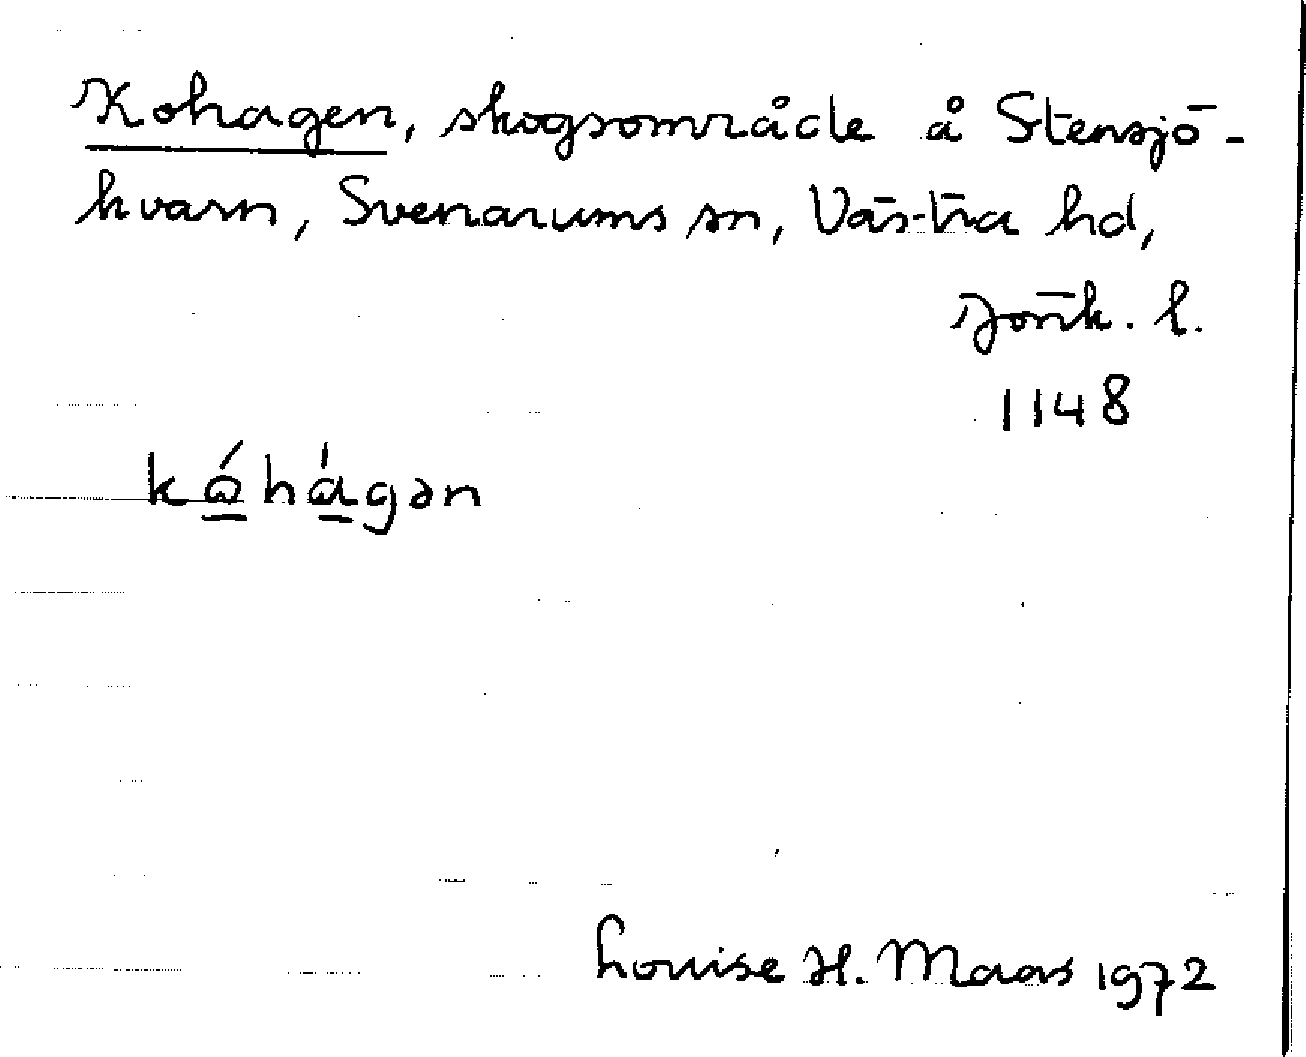 Kohagen, skogsområde å Stensjö-
kvarn, Svenarums sn, Västra hd,
Jönk. l.
1148
kɷ́hàgən
Louise H. Maas 1972